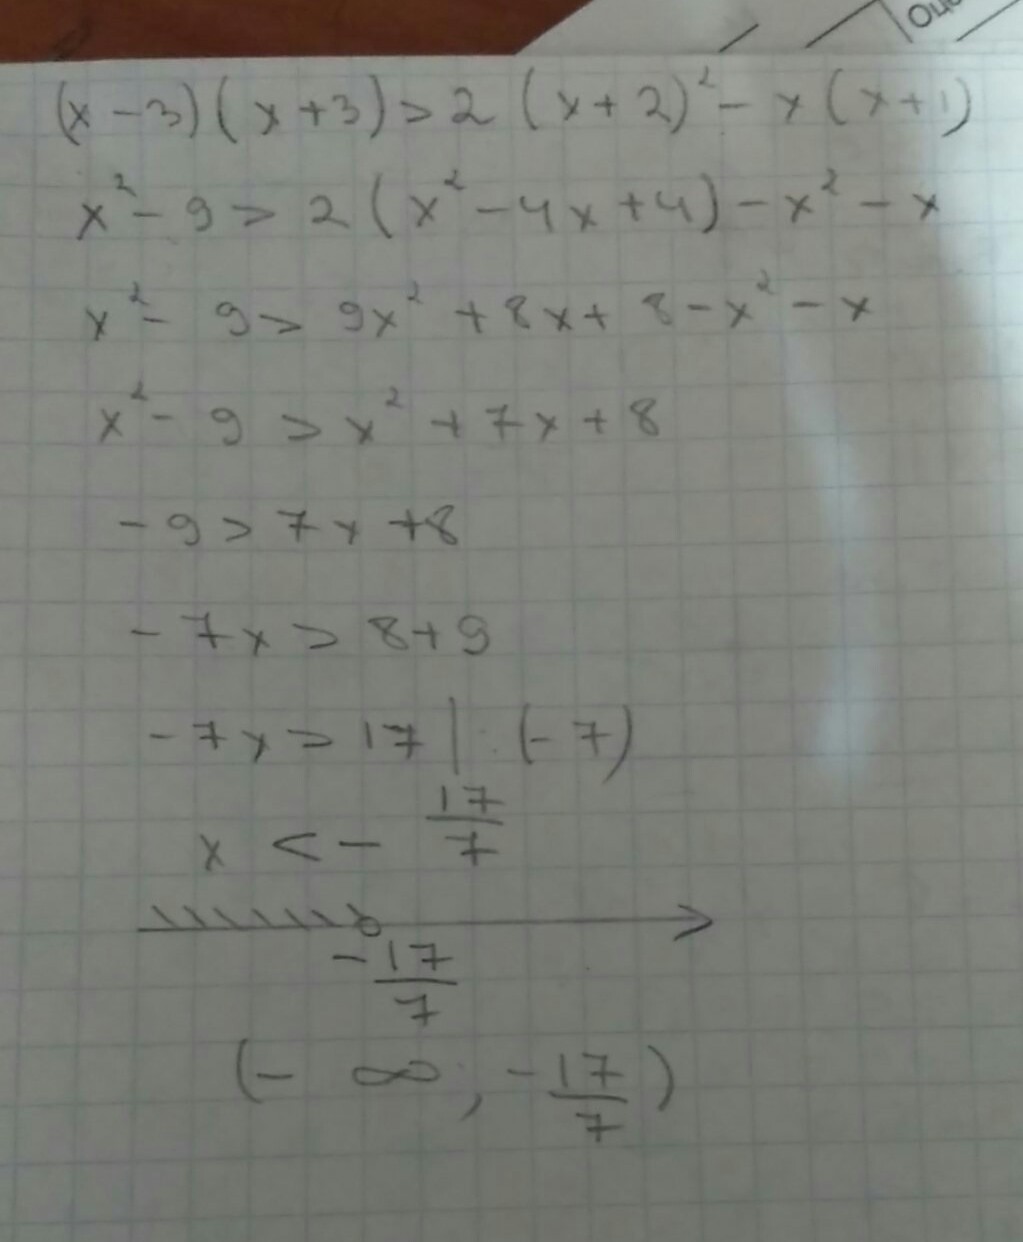 Оц
(x-3)(x+3)>2(x+2)²-x(x+1)
x²-9>2(x²-4x+4)-x²-x
x²-9>9x²+8x+8-x²-x
x²-9>x²+7x+8
-9>7x+8
-7x>8+9
-7x>17|:(-7)
x<-17/7
-17/7
(-∞;-17/7)